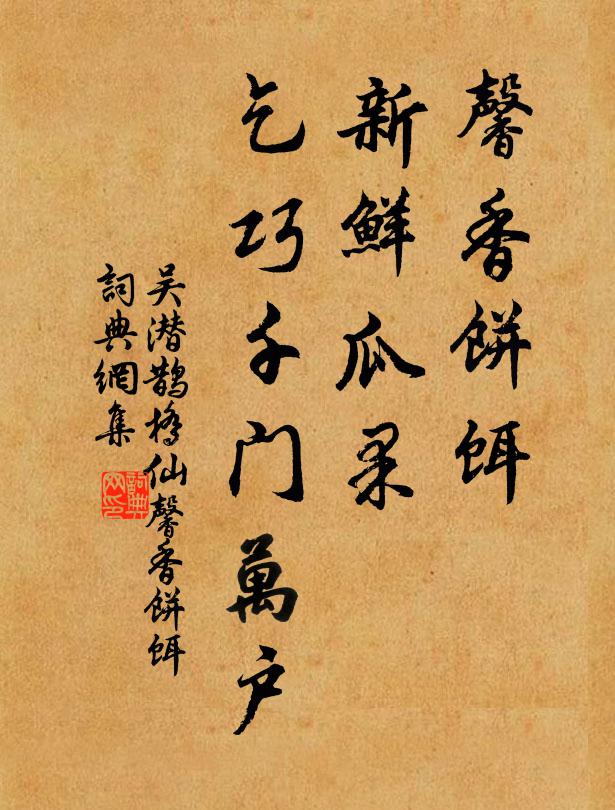 馨香餅餌
新鮮瓜果
乞巧千门萬户
吴潛鵲橋仙馨香餅餌
詞典網集
詞典
网印